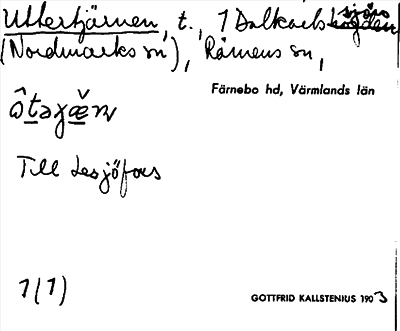 Uttertjärnen, t., 1 Dalkarlssjöhöjden
(Nordmarks sn), Rämens sn,
Färnebo hd, Värmlands län
Till Lesjöfors
1(1)
GOTTFRID KALLSTENIUS 1903